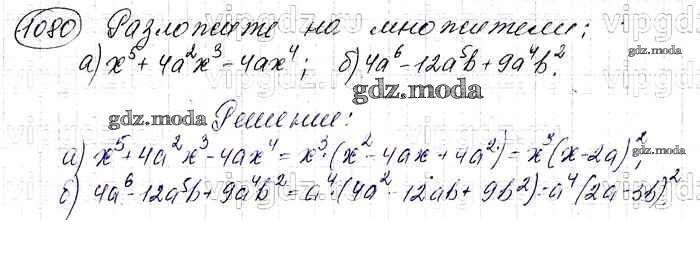 1080 Разложите на множители:
а) x⁵ + 4a²x³ - 4ax⁴; б) 4a⁶ - 12a⁵b + 9a⁴b².
gdz.moda
gdz.moda
Решение:
а) x⁵ + 4a²x³ - 4ax⁴ = x³·(x² - 4ax + 4a²) = x³(x - 2a)²;
gdz.moda
б) 4a⁶ - 12a⁵b + 9a⁴b² = a⁴·(4a² - 12ab + 9b²) = a⁴(2a - 3b)².
gdz.moda